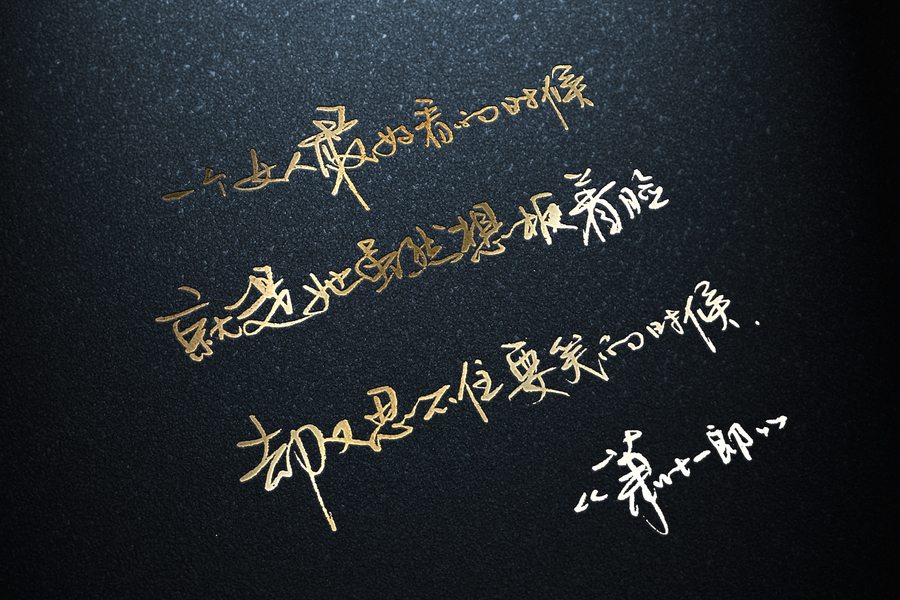 一个女人最好看的时候
就是她虽然想板着脸
却又忍不住要笑的时候.
《萧十一郎》